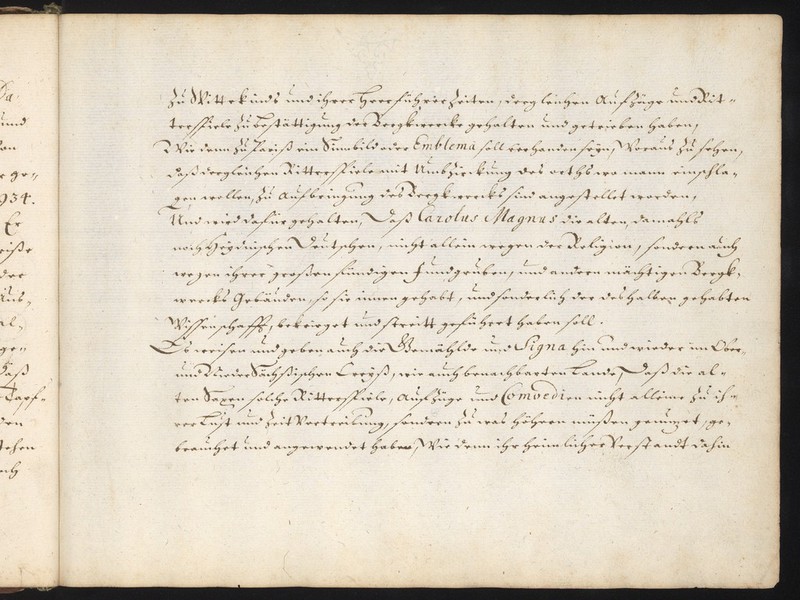 Da
und
von
ge-
934.
Er
der
Aus-
al-
ge-
daß
den
zu Wittekinds und ihrer Heerführer Zeiten, dergleichen Aufzüge und Rit-
terspiele zu bestättigung der Bergkwercke gehalten und getrieben haben,
Wie denn zu ein Sinnbild oder Emblema soll verhanden seyn, Woraus zu sehen,
daß dergleichen Ritterspiele mit des orths wo mann einschla-
gen wollen, zu aufbringung des Bergkwercks sind angestellet worden,
Und wird dafür gehalten, Daß Carolus Magnus die alten, damahls
noch Heydnischen Deutschen, nicht allein wegen der Religion, sondern auch
wegen ihrer großen fündigen fundgruben, und andern mächtigen Bergk-
wercks Gebäuden, so sie innen gehabt, und sonderlich der deshalben gehabten
Wissenschafft, bekrieget und streitt geführet haben soll.
Es weisen und geben auch die Gemählde und Signa hin und wieder im Ober-
und NiederSächsischen Creyß, wie auch benachbarten Lande, Daß die al-
ten Saxen solche Ritterspiele, Aufzüge und Comoedien nicht alleine zu ih-
rer Lust und Zeit Vertreibung, sondern zu was höhern müßen genutzet, ge-
brauchet und angewendet haben, Wie denn ihr heimlicher Verstandt dahin